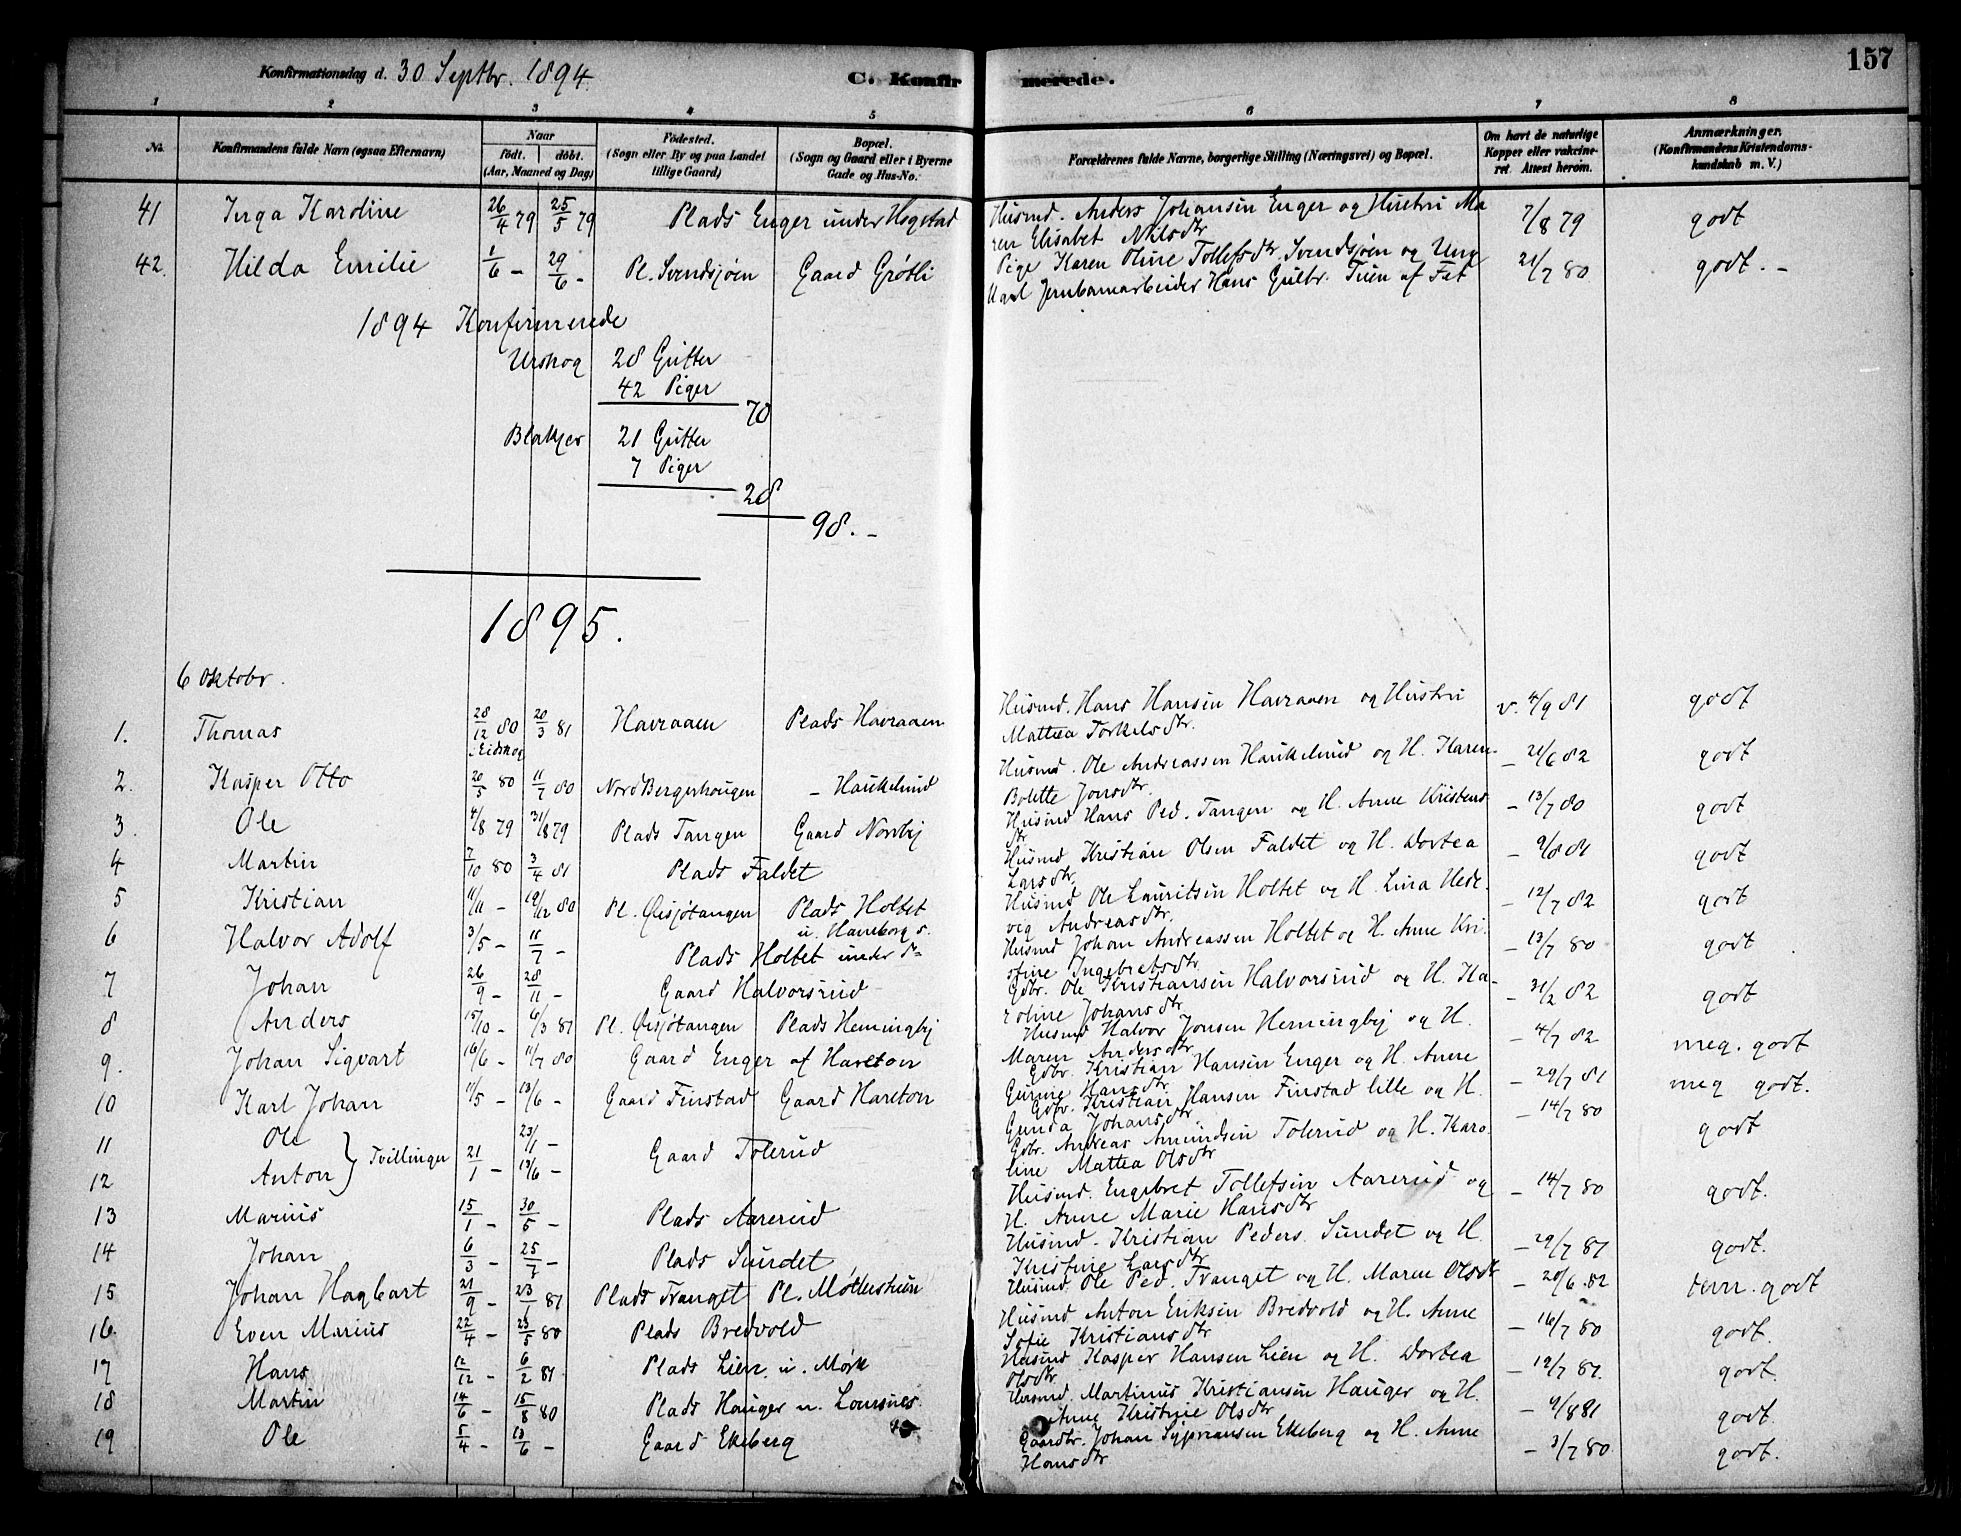 157
Konfirmationsdag d. 30 Septbr. 1894.
C. Konfirmerede.
1 2 3 4 5 6 7 8
No. Konfirmandens fulde Navn (ogsaa Efternavn) Naar født. døbt. (Aar, Maaned og Dag) Födested. (Sogn eller By og paa Landet tillige Gaard) Bopæl. (Sogn og Gaard eller i Byerne Gade og Hus-No. Forældrenes fulde Navne, borgerlige Stilling (Næringsvei) og Bopæl. Om havt de naturlige Kopper eller vakcineret. Attest herom. Anmærkninger. (Konfirmandens Kristendomskundskab m. V.)
41 Inga Karoline 26/4 79 25/5 79 Plads Enger under Hogstad Husmd. Anders Johansen Enger og Hustru Ma
ren Elisabet Nilsdtr 7/8 79 godt
42. Hilda Emilie 1/6 - 29/6 - Pl. Svendsjøen Gaard Grøtli Pige Karen Oline Tollefsdtr. Svendsjøen og Ung
karl Jernbanearbeider Hans Gulbr. Tuen af Fet 21/7 80 godt. -
1894 Konfirmerede
Urskog 28 Gutter
42 Piger
70
Blakjer 21 Gutter
7 Piger
28
98. -
1895.
6 Oktobr.
1. Thomas 28/12 80 i Eidskog 20/3 81 Havraaen Plads Havraaen Husmd. Hans Hansen Havraaen og Hustru
Mattea Torkelsdtr. v. 4/9 81 godt
2. Kasper Otto 20/5 80 11/7 80 Nord Bergerhougen - Haukelund Husmd. Ole Andreassen Haukelund og H. Karen
Bolette Jonsdtr. - 21/6 82 godt
3. Ole 4/8 79 31/8 79 Plads Tangen Gaard Nordby Husmd Hans Ped. Tangen og H. Anne Kristens
dtr. - 13/7 80 godt
4 Martin 7/10 80 3/4 81 Plads Faldet Husmd Kristian Olsen Faldet og H. Dortea
Larsdtr. - 9/8 81 godt
5 Kristian 11/11 - 19/12 80 Pl. Øisjøtangen Plads Holtet
u. Haneborg s. Husmd Ole Lauritsen Holtet og H. Lina Hede-
veg Andreasdtr. - 12/7 82 godt
6 Halvor Adolf 3/5 - 11/7 - Plads Holtet under Husmd Johan Andreassen Holtet og H. Anne Kri-
stine Ingebretsdtr - 13/7 80 godt
7 Johan 26/9 - 28/11 - Gaard Halvorsrud Gdbr. Ole Kristiansen Halvorsrud og H. Ka-
roline Johansdtr - 31/2 82 godt
8 Anders 15/10 - 6/3 81 Pl. Øisjøtangen Plads Hemingby Husmd Halvor Jonsen Hemingby og H.
Maren Andersdtr - 4/7 82 meg. godt
9. Johan Sigvart 16/6 - 11/7 80 Gaard Enger af Hareton Gdbr. Kristian Hansen Enger og H. Anne
Gurine Hansdtr - 29/7 81 meg godt.
10 Karl Johan 11/5 - 13/6 - Gaard Finstad Gaard Hareton Gdbr. Kristian Hansen Finstad lille og H.
Gunda Johansdtr - 14/7 80 godt
11 Ole 21/1 - 23/1 - Gaard Tolerud Gdbr. Andreas Amundsen Tolerud og H. Karo
12 Anton } Tvillinger 13/6 - line Mattea Olsdtr
13 Marius 15/1 - 30/5 - Plads Aarerud Husmd. Engebret Tollefsen Aarerud og
H. Anne Marie Hansdtr - 14/7 80 godt.
14 Johan 6/3 - 25/7 - Plads Sundet Husmd. Kristian Peders. Sundet og H.
Kristine Larsdtr - 29/7 81 godt.
15 Johan Hagbart 21/9 - 23/1 81 Plads Tranget Pl. Møllersteien Husmd. Ole Ped. Tranget og H. Maren Olsdtr - 20/6 82 godt
16. Even Marius 22/4 - 23/5 80 Plads Bredvold Husmd Anton Eriksen Bredvold og H. Anne
Sofie Kristiansdtr - 16/7 80 godt.
17 Hans 12/12 - 6/2 81 Plads Lien. u. Mørk Husmd. Kasper Hansen Lien og H. Dortea
Olsdtr - 12/7 81. godt.
18 Martin 14/6 - 15/8 80 Plads Hauger u. Lomsnes. Husmd. Martinus Kristiansen Hauger og H.
Anne Kristine Olsdtr - 9/8 81 godt.
19 Ole 5/4 - 13/6 - Gaard Ekeberg Gaardbr. Johan Syprensen Ekeberg og H. Anne
Hansdtr - 3/7 80 godt.